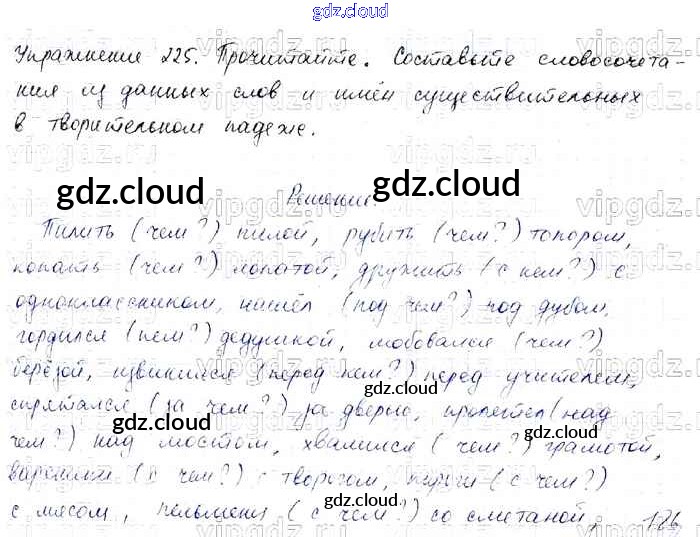 gdz.cloud
Упражнение 225. Прочитайте. Составьте словосочета-
ния из данных слов и имён существительных
в творительном падеже.
gdz.cloud
gdz.cloud
Решение
Пилить (чем?) пилой, рубить (чем?) топором,
копать (чем?) лопатой, дружить (с кем?) с
одноклассником, нашёл (под чем?) под дубом,
гордился (кем?) дедушкой, любовался (чем?)
берёзой, извинился (перед кем?) перед учителем,
gdz.cloud
спрятался (за чем?) за дверью, пролетел (над
чем?) над мостом, хвалился (чем?) грамотой,
gdz.cloud
gdz.cloud
вареники (с чем?) с творогом, пироги (с чем?)
с мясом, пельмени (с чем?) со сметаной,
gdz.cloud
126